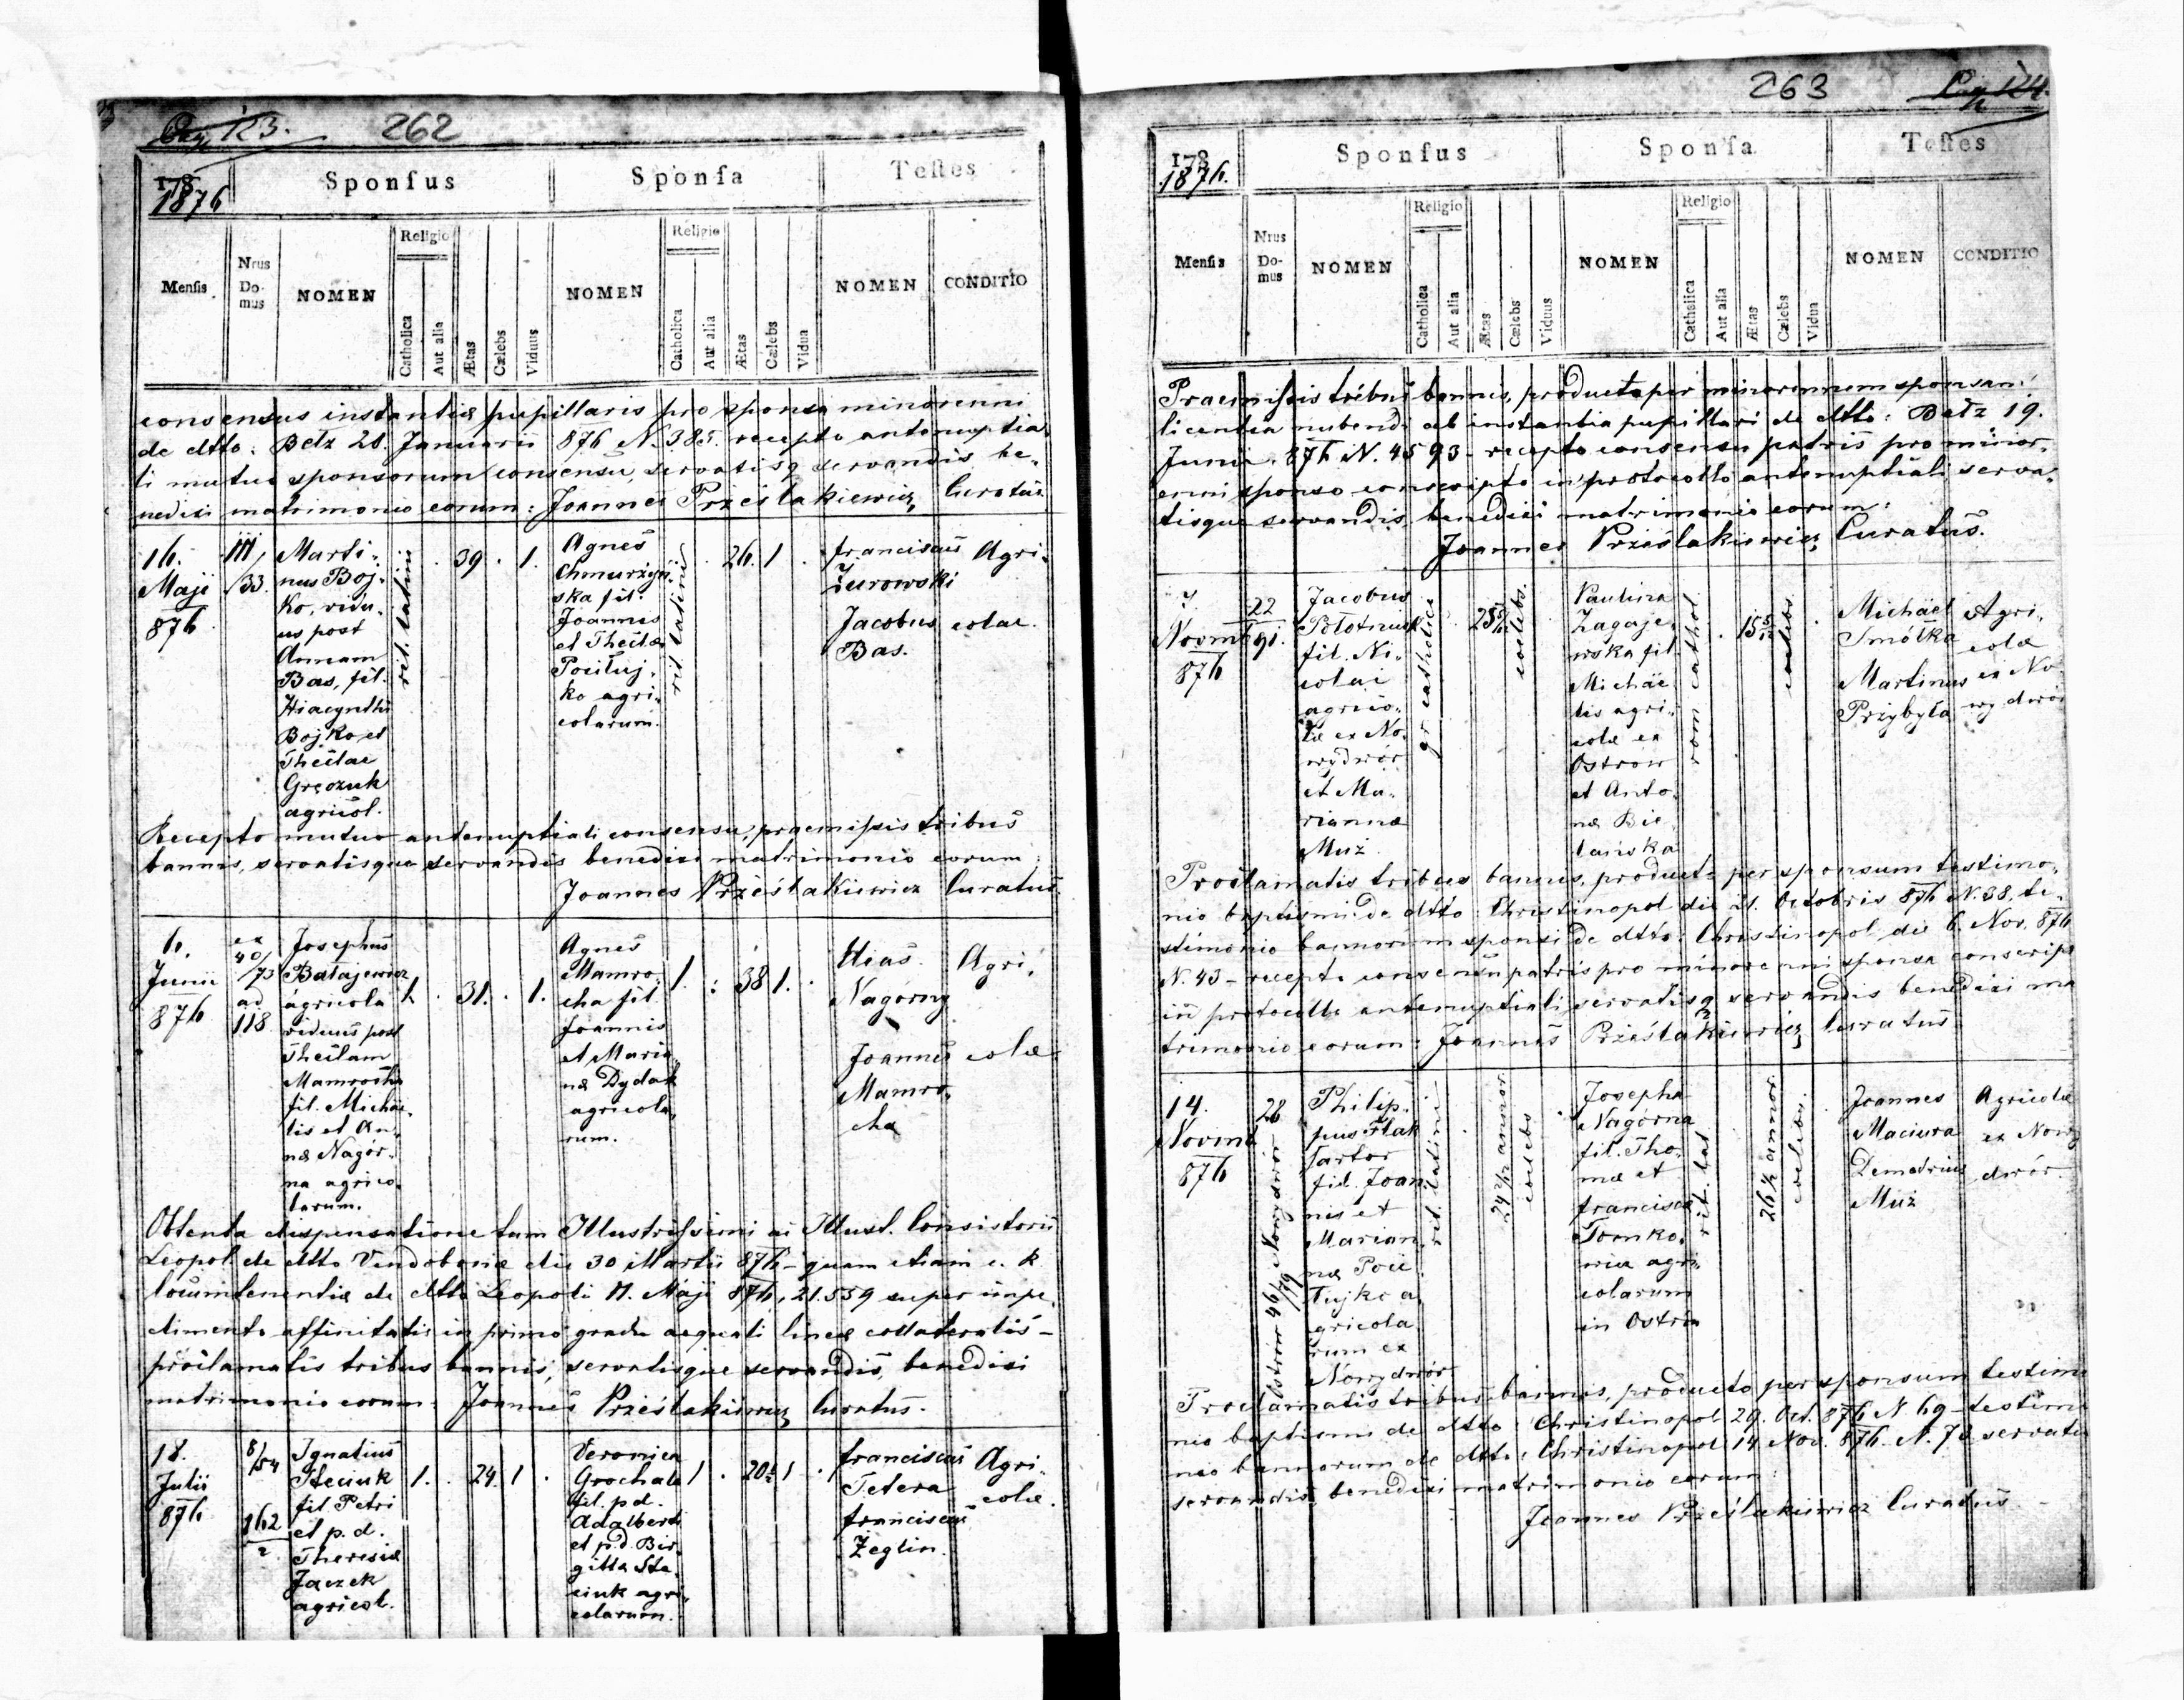 Pag. 123.
262
178
1876
Sponsus
Sponsa
Testes
Mensis
Nrus Domus
NOMEN
Religio
Catholica
Aut alia
Ætas
Cælebs
Viduus
NOMEN
Religio
Catholica
Aut alia
Ætas
Cælebs
Vidua
NOMEN
CONDITIO
consensus instantiæ pupillaris pro sponsa minorenni
de dtto: Bełz 28. Januarii 876 N. 385. recepto antenuptia-
li mutuo sponsorum consensu, servatisq servandis be-
nedixi matrimonio eorum: Joannes Prześlakiewicz, Curatus.
16.
Maji
876
III/
/33.
Marti-
nus Boj-
ko, vidu-
us post
Annam
Bas, fil.
Hiacynthi
Bojko et
Theclae
Gręczuk
agricol.
rit. latini
39
1.
Agnes
Chmurzyń-
ska fil.
Joannis
et Theclæ
Pociłuj-
ko agri-
colarum.
rit latini
26.
1
Franciscus
Żurowski
Jacobus
Bas.
Agri-
colae.
Recepto mutuo antenuptiali consensu, praemissis tribus
bannis, servatisque servandis benedixi matrimonio eorum
Joannes Prześlakiewicz Curatus.
6.
Junii
876
ex
40/
/73
ad
118
Josephus
Bałajewicz
agricola
viduus post
Theclam
Mamrocha
fil. Michae-
lis et An-
næ Nagór-
na agrico-
larum.
1.
31.
1.
Agnes
Mamro-
cha fil.
Joannis
et Maria-
næ Dydak
agricola-
rum.
1.
38
1.
Elias
Nagórny
Joannes
Mamro-
cha
Agri-
colæ
Obtenta dispensatione tam Illustrissimi ac Illust. Consistorii
Leopol. de dtto Vindobonæ die 30 Martii 876 - quam etiam c. k.
locumtenentiæ de dtto Leopoli 11. Maji 876, 21.559 super impe-
dimento affinitatis in primo gradu aequali lineæ collateralis -
proclamatis tribus bannis, servatisque servandis, benedixi
matrimonio eorum: Joannes Prześlakiewicz Curatus.
18.
Julii
876
8/54
162
2
Ignatius
Steciuk
fil Petri
et p. d.
Theresiæ
Jaczek
agricol.
1.
24.
1
Veronica
Grochala
fil. p d.
Adalberti
et p.d. Bir-
gitta Ste-
ciuk agri-
colarum.
1
20½
1
Franciscus
Tetera
Franciscus
Żeglin.
Agri-
colæ.
263
Pag 124.
178
1876.
Sponsus
Sponsa
Testes
Mensis
Nrus Domus
NOMEN
Religio
Catholica
Aut alia
Ætas
Cælebs
Viduus
NOMEN
Religio
Catholica
Aut alia
Ætas
Cælebs
Vidua
NOMEN
CONDITIO
Praemissis tribus bannis, producta per minorennem sponsam
licentia nubendi ab instantia pupillari de dtto: Bełz 19.
Junii 876 N. 4593 - recepto consensu patris pro minor-
enni sponso conscripto in protocollo antenuptiali serva-
tisque servandis, benedixi matrimonio eorum:
Joannes Prześlakiewicz Curatus.
7
Novmb
876
22
91.
Jacobus
Połotniuk
fil. Ni-
colai
agrico-
læ ex No-
wydwór
et Ma-
riannæ
Muż
gr catholicæ
coelebs.
Paulina
Zagaje-
wska fil
Michae-
lis agri-
colæ ex
Ostrow
et Anto-
næ Bie-
lańska
rom cathol.
15
coelebs
Michael
Smółka
Martinus
Przybyła
Agri-
colæ
ex No-
wydwór
Proclamatis tribus bannis, producto per sponsum testimo-
nio baptismi de dtto: Christinopol die 21. Octobris 876 N. 38, te-
stimonio bannorum sponsi de dtto: Christinopol die 6. Nov. 876
N. 43 - recepto consensu patris pro minorenni sponsa conscript
in protocollo antenuptiali servatisq servandis benedixi ma
trimonio eorum: Joannes Prześlakiewicz Curatus
14.
Novmb
876
28
Nowydwór
Ostrow 46/79
Philip-
pus Flak
sartor
fil. Joan-
nis et
Marian-
næ Poci-
łujko a-
gricola-
rum ex
Nowydwór
rit. latini
24 annor.
coelebs
Josepha
Nagórna
fil. Tho-
mæ et
Franciscæ
Tomko-
wicz agri-
colarum
in Ostrow
rit. lat
26 annor.
coelebs
Joannes
Maciura
Demetrius
Muż
Agricolæ
ex Nowy
dwór
Proclamatis tribus bannis, producto per sponsum testimo
nio baptismi de dtto: Christinopol 29. Oct. 876 N. 69 - testimo
nio bannorum de dtto: Christinopol 14 Nov. 876 N. 70 servatis
servandis, benedixi matrimonio eorum:
Joannes Prześlakiewicz Curatus